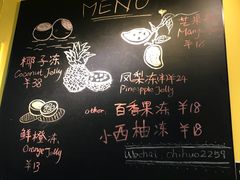 MENU
椰子冻
Coconut Jelly
¥38
芒果
Mang
¥16
凤梨冻
¥24
Pineapple Jelly
鲜橙冻
Orange Jelly
¥13
other: 百香果冻 ¥18
小西柚冻 ¥18
Wechat chihuo2259